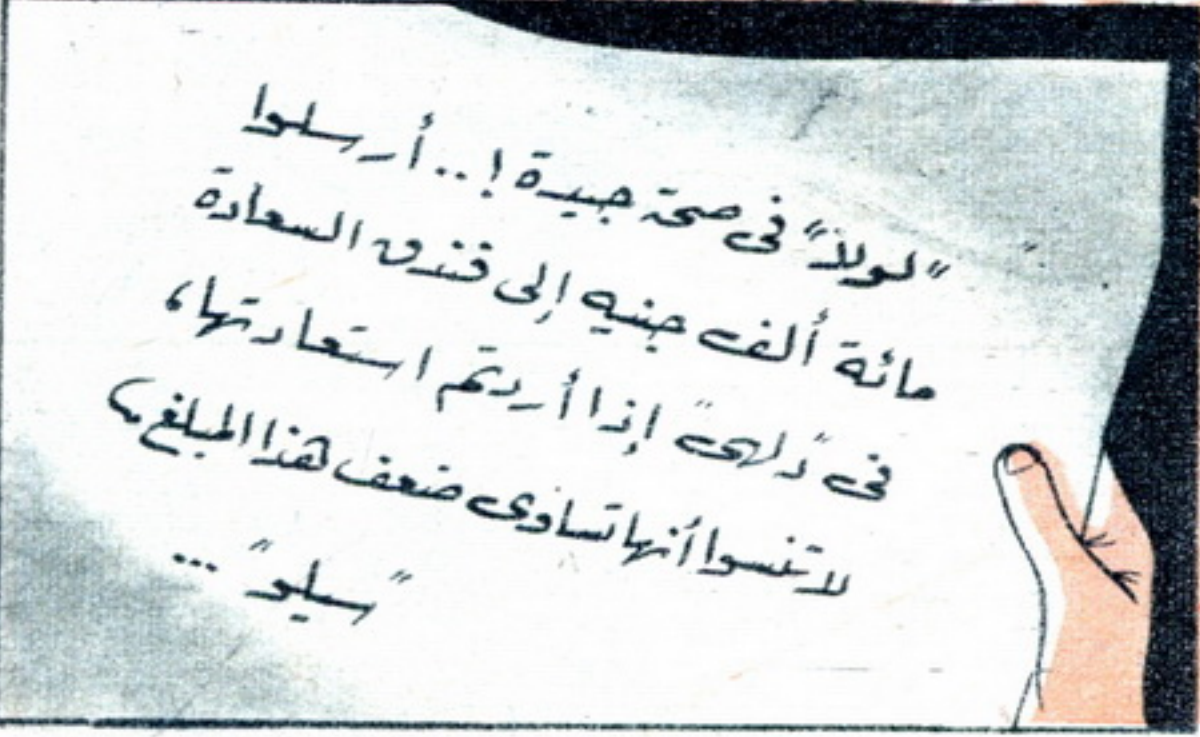 "لولا" فى صحة جيدة !.. أرسلوا
مائة ألف جنيه إلى فندق السعادة
فى "دلهى" إذا أردتم استعادتها،
لا تنسوا أنها تساوى ضعف هذا المبلغ،
"سيلو" ...